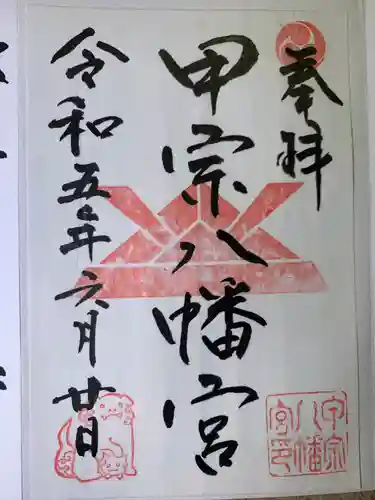 奉拝
甲宗八幡宮
令和五年六月廿日
甲宗
八幡
宮印